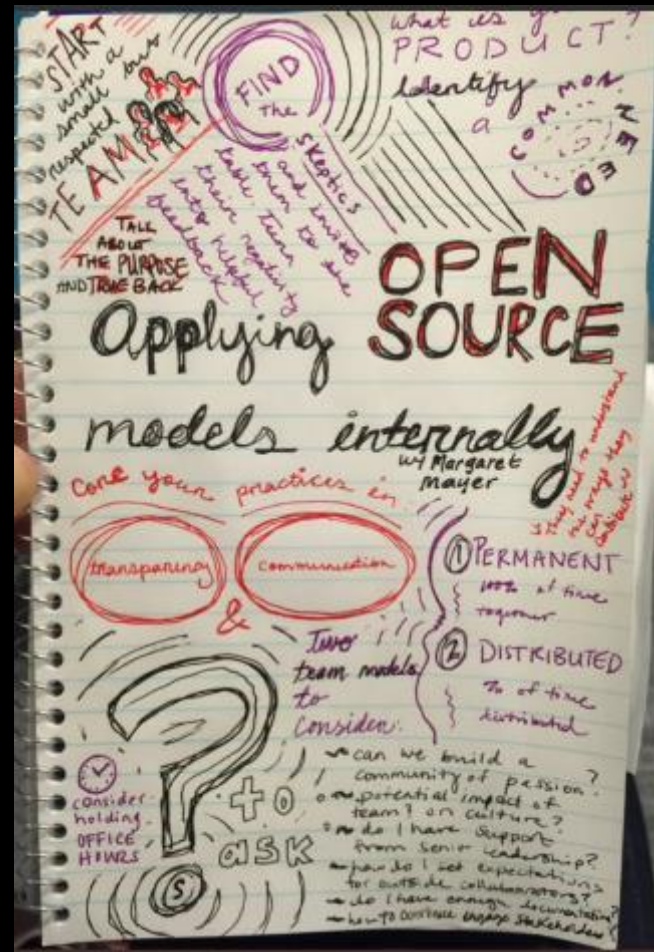 START
with a
small but
respected
TEAM
FIND
the
skeptics
and invite
them to the
table. Turn
their negativity
into helpful
feedback
what is
PRODUCT?
Identify
a
COMMON NEED
TALK
ABOUT
THE PURPOSE
AND TRUE BACK
Applying
OPEN
SOURCE
models internally
w/ Margaret
Mayer
They need to understand
the ways they
can
contribute
Core your practices in
transparency
&
communication
Two
team models
to
consider:
1 PERMANENT
100% of time
together
2 DISTRIBUTED
% of time
distributed
?
(S)
to
ask
consider
holding
OFFICE
HOURS
can we build a
community of passion?
potential impact of
team? on culture?
do I have support
from senior leadership?
how do I set expectations
for outside collaborators?
do I have enough documentation?
how to continue engage stakeholders